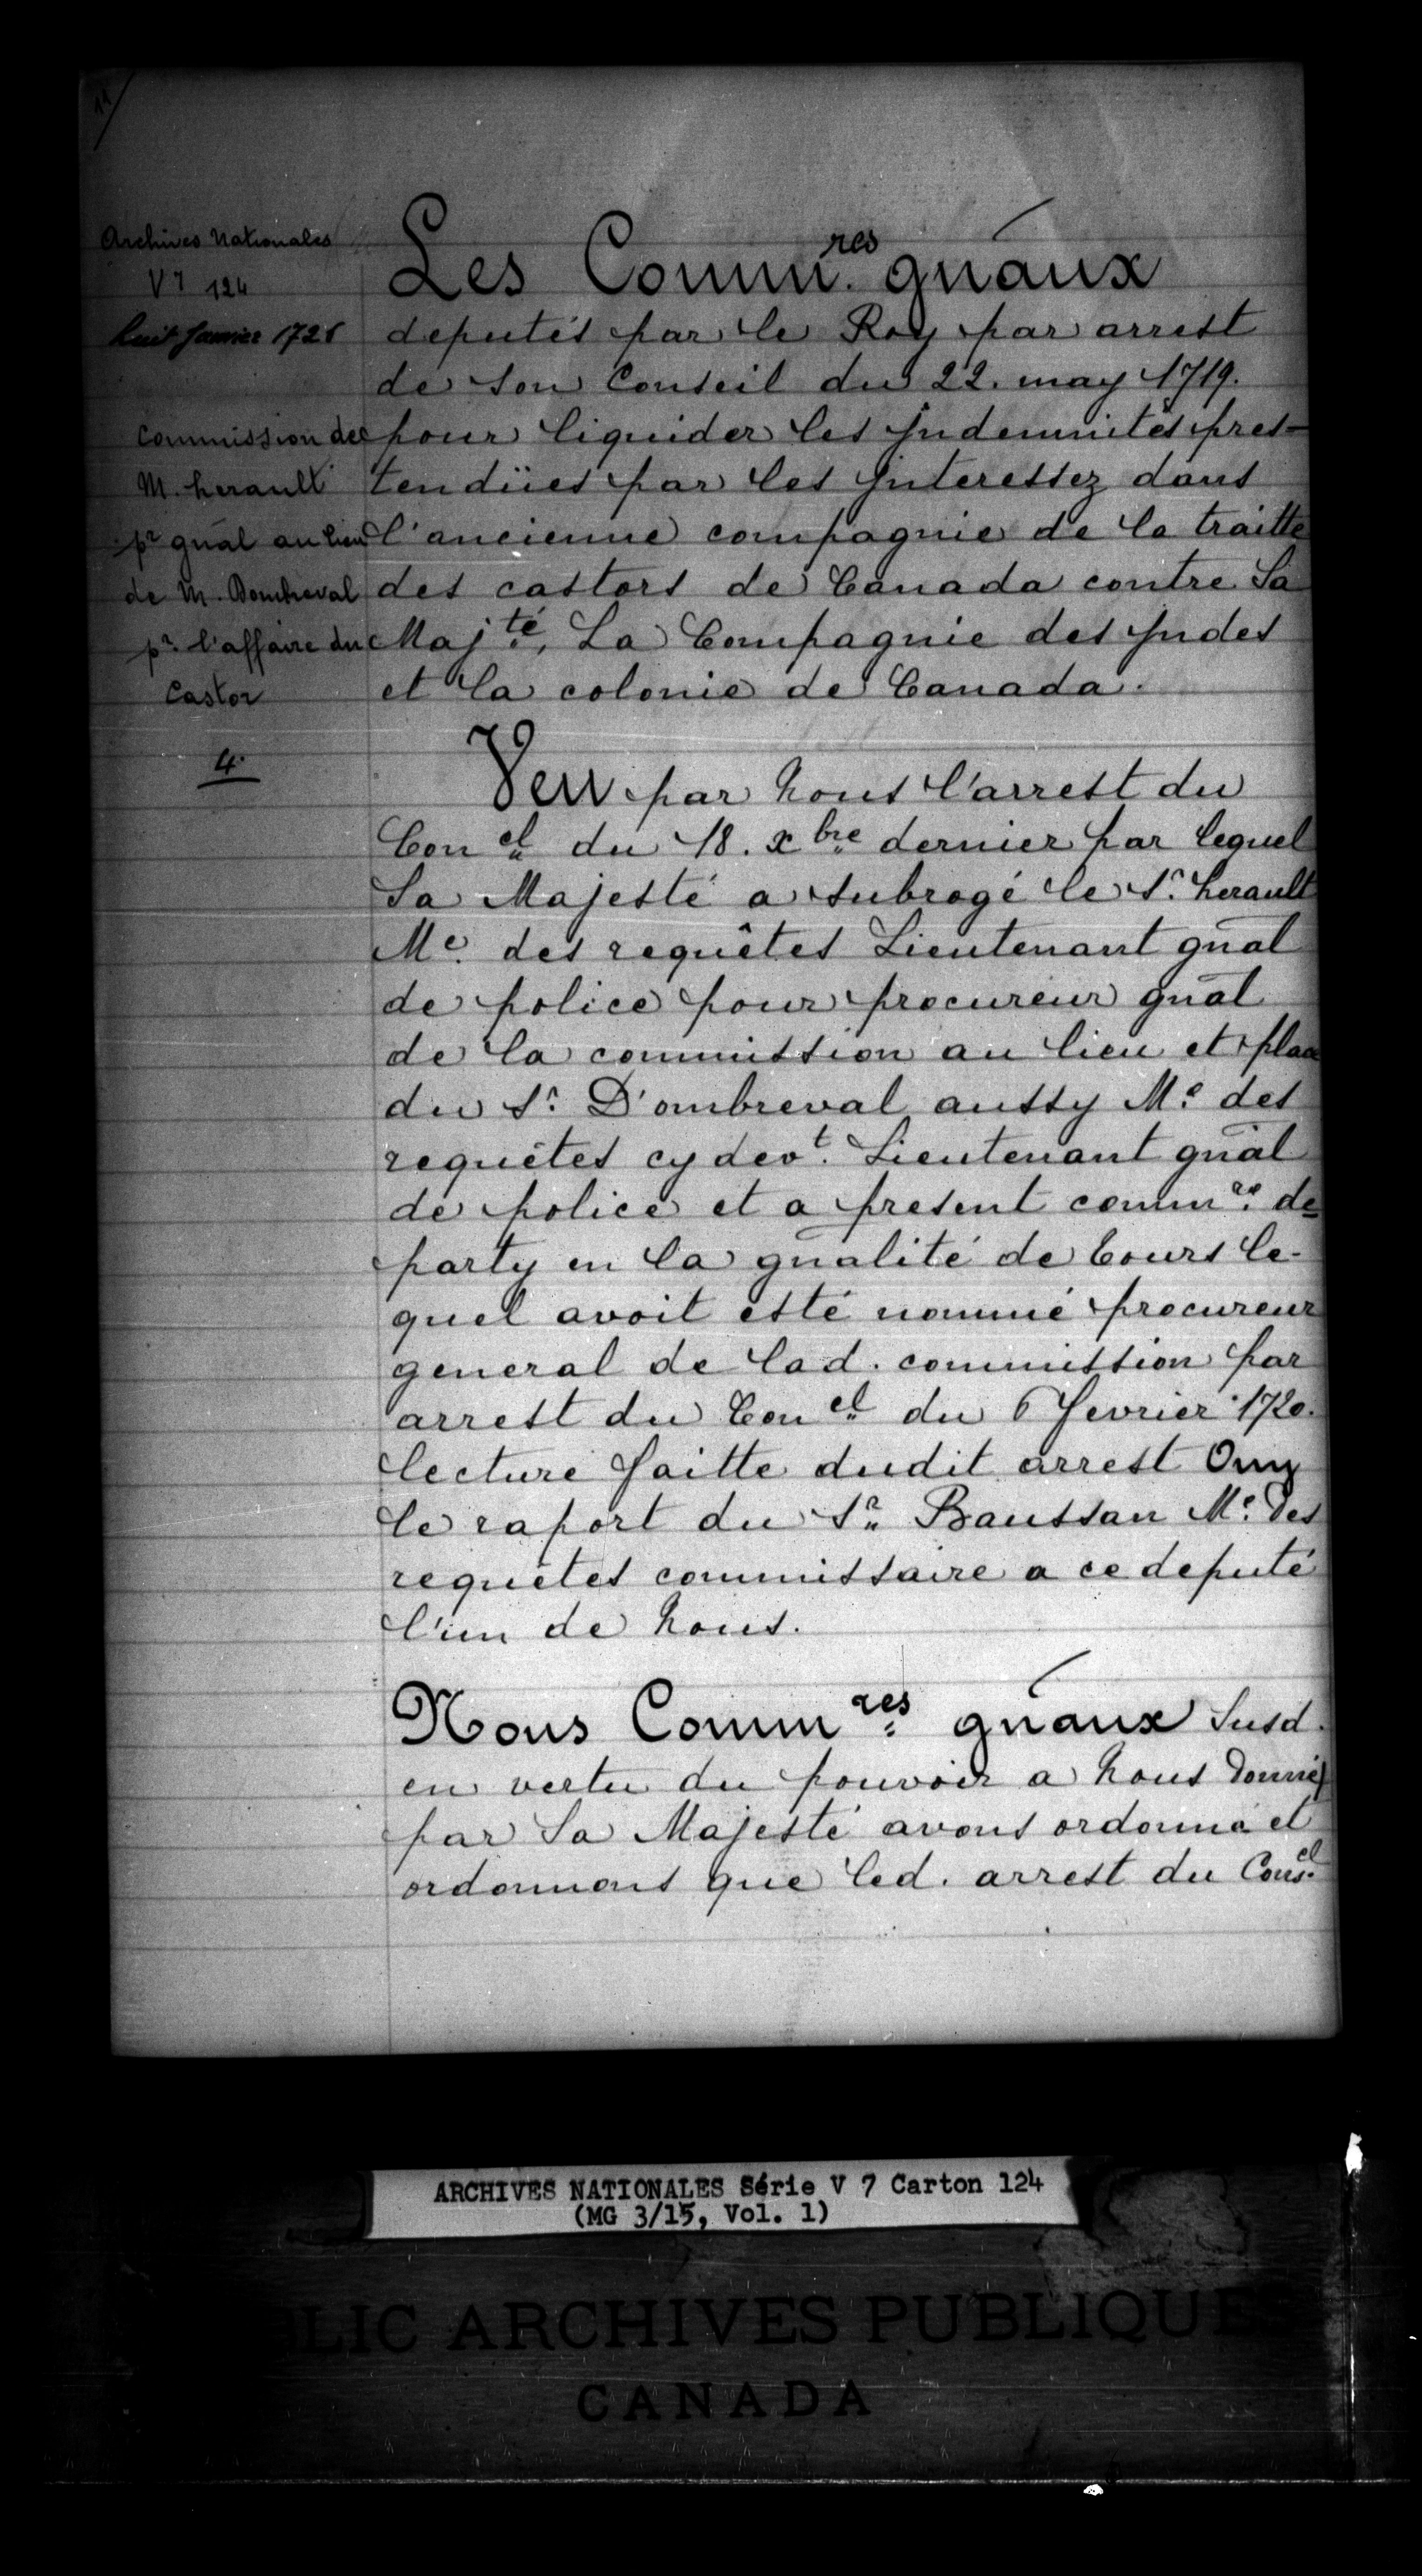 11/
Archives Nationales
V7 124
huit Janvier 1726
Commission de
M. herault
pr gñal au lieu
de M. Dombreval
pr. l'affaire du
Castor
4.
Les Comm.res gñaux
deputés par le Roy par arrest
de son Conseil du 22. may 1719.
pour liquider les Jndemnités pres-
tendües par les Jnteressez dans
l'ancienne compagnie de la traitte
des castors de Canada contre Sa
Maj.té, La Compagnie des Jndes
et la colonie de Canada.
Veu par Nous l'arrest du
Con.el du 18. xbre dernier par lequel
Sa Majesté a subrogé le Sr. herault
Me. des requêtes Lieutenant gñal
de police pour procureur gñal
de la commission au lieu et place
du Sr. D'ombreval aussy Me. des
requêtes cy devt. Lieutenant gñal
de police et a present commre. de=
party en la gñalité de Tours le-
quel avoit esté nommé procureur
general de lad. commission par
arrest du Con.el du 6 fevrier 1720.
lecture faitte dudit arrest Ouy
le raport du Sr. Baussan Me. des
requêtes commissaire a ce deputé
l'un de Nous.
Nous Comm.res gñaux Susd.
en vertu du pouvoir a Nous donné
par Sa Majesté avons ordonné et
ordonnons que led. arrest du Cons.el
ARCHIVES NATIONALES Série V 7 Carton 124
(MG 3/15, Vol. 1)
BLIC ARCHIVES PUBLIQUE
CANADA